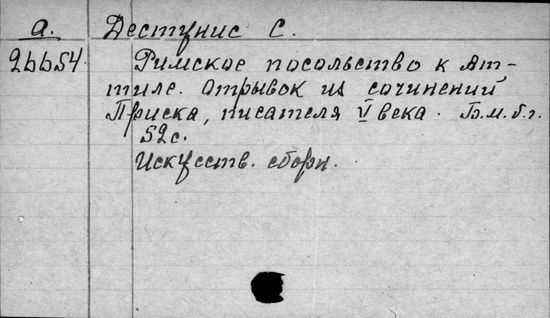 а. Дестунис С.
26654. Римское посольство к Ат-
тиле. Отрывок из сочинений
Приска, писателя V века. Б.м.б.г.
52с.
Искусств. сборн.